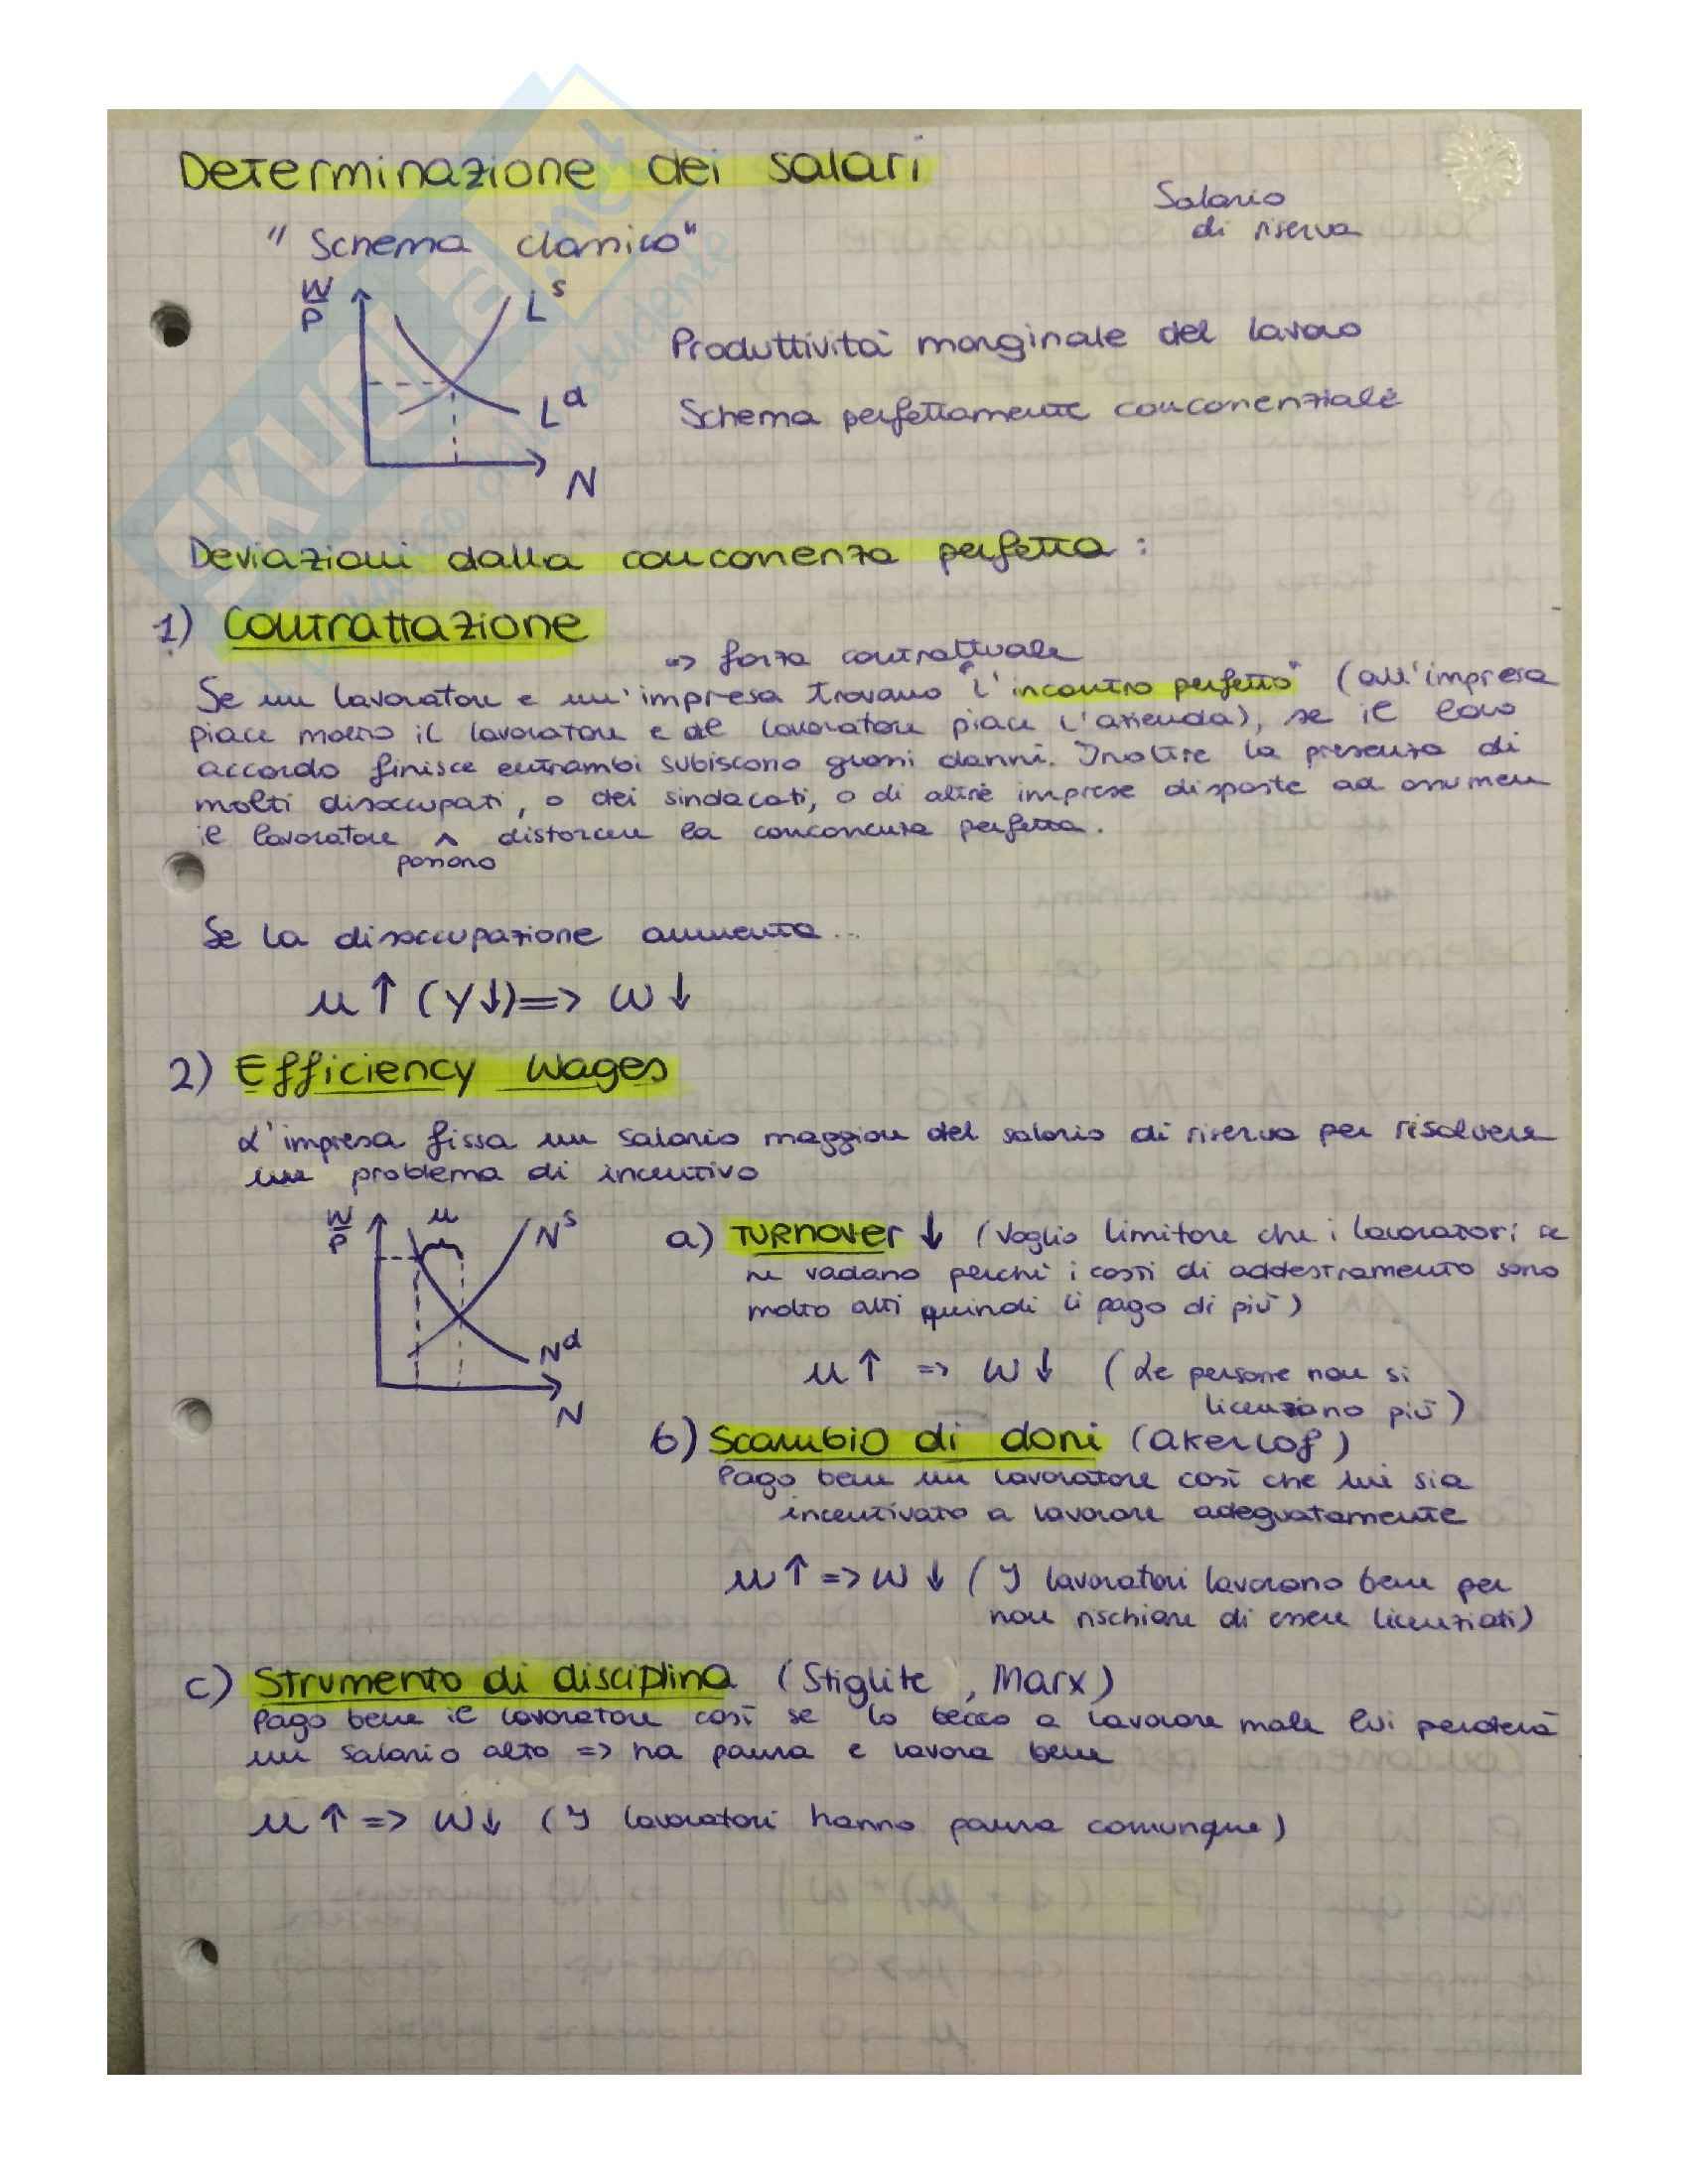 Determinazione dei salari
Salario
di riserva
"Schema classico"
W
P
L^s
Produttività marginale del lavoro
L^d
Schema perfettamente concorrenziale
N
Deviazioni dalla concorrenza perfetta:
1) Contrattazione
=> forza contrattuale
Se un lavoratore e un'impresa trovano "l'incontro perfetto" (all'impresa
piace molto il lavoratore e al lavoratore piace l'azienda), se il loro
accordo finisce entrambi subiscono grossi danni. Inoltre la presenza di
molti disoccupati, o dei sindacati, o di altre imprese disposte ad assumere
il lavoratore ^ distorcere la concorrenza perfetta.
possono
Se la disoccupazione aumenta...
u ↑ (Y↓) => W ↓
2) Efficiency Wages
L'impresa fissa un salario maggiore del salario di riserva per risolvere
un problema di incentivo
W
P
u
N^s
N^d
N
a) Turnover ↓ (Voglio limitare che i lavoratori se
ne vadano perchè i costi di addestramento sono
molto alti quindi li pago di più)
u ↑ => W ↓ (Le persone non si
licenziano più)
b) Scambio di doni (Akerlof)
Pago bene un lavoratore così che lui sia
incentivato a lavorare adeguatamente
u ↑ => W ↓ (I lavoratori lavorano bene per
non rischiare di essere licenziati)
c) Strumento di disciplina (Stiglite, Marx)
Pago bene il lavoratore così se lo becco a lavorare male lui perderà
un salario alto => ha paura e lavora bene
u ↑ => W ↓ (I lavoratori hanno paura comunque)
SKUOLA.net